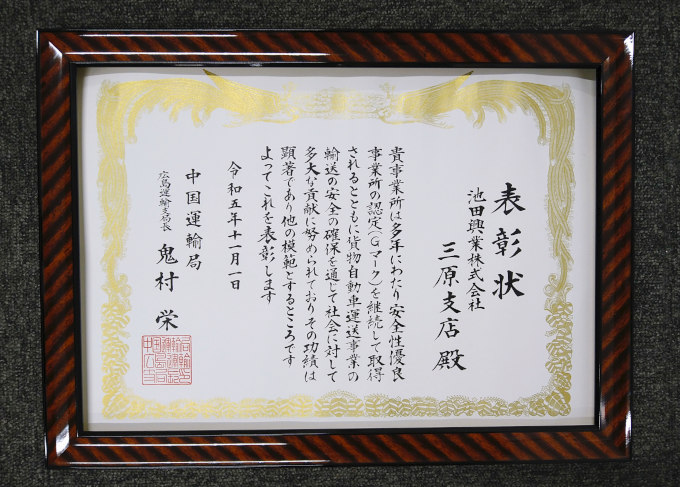 表彰状
池田興業株式会社
三原支店 殿
貴事業所は多年にわたり安全性優良
事業所の認定(Gマーク)を継続して取得
されるとともに貨物自動車運送事業の
輸送の安全の確保を通じて社会に対して
多大な貢献に努められておりその功績は
顕著であり他の模範とするところです
よってこれを表彰します
令和五年十一月一日
中国運輸局
広島運輸支局長 鬼村 栄